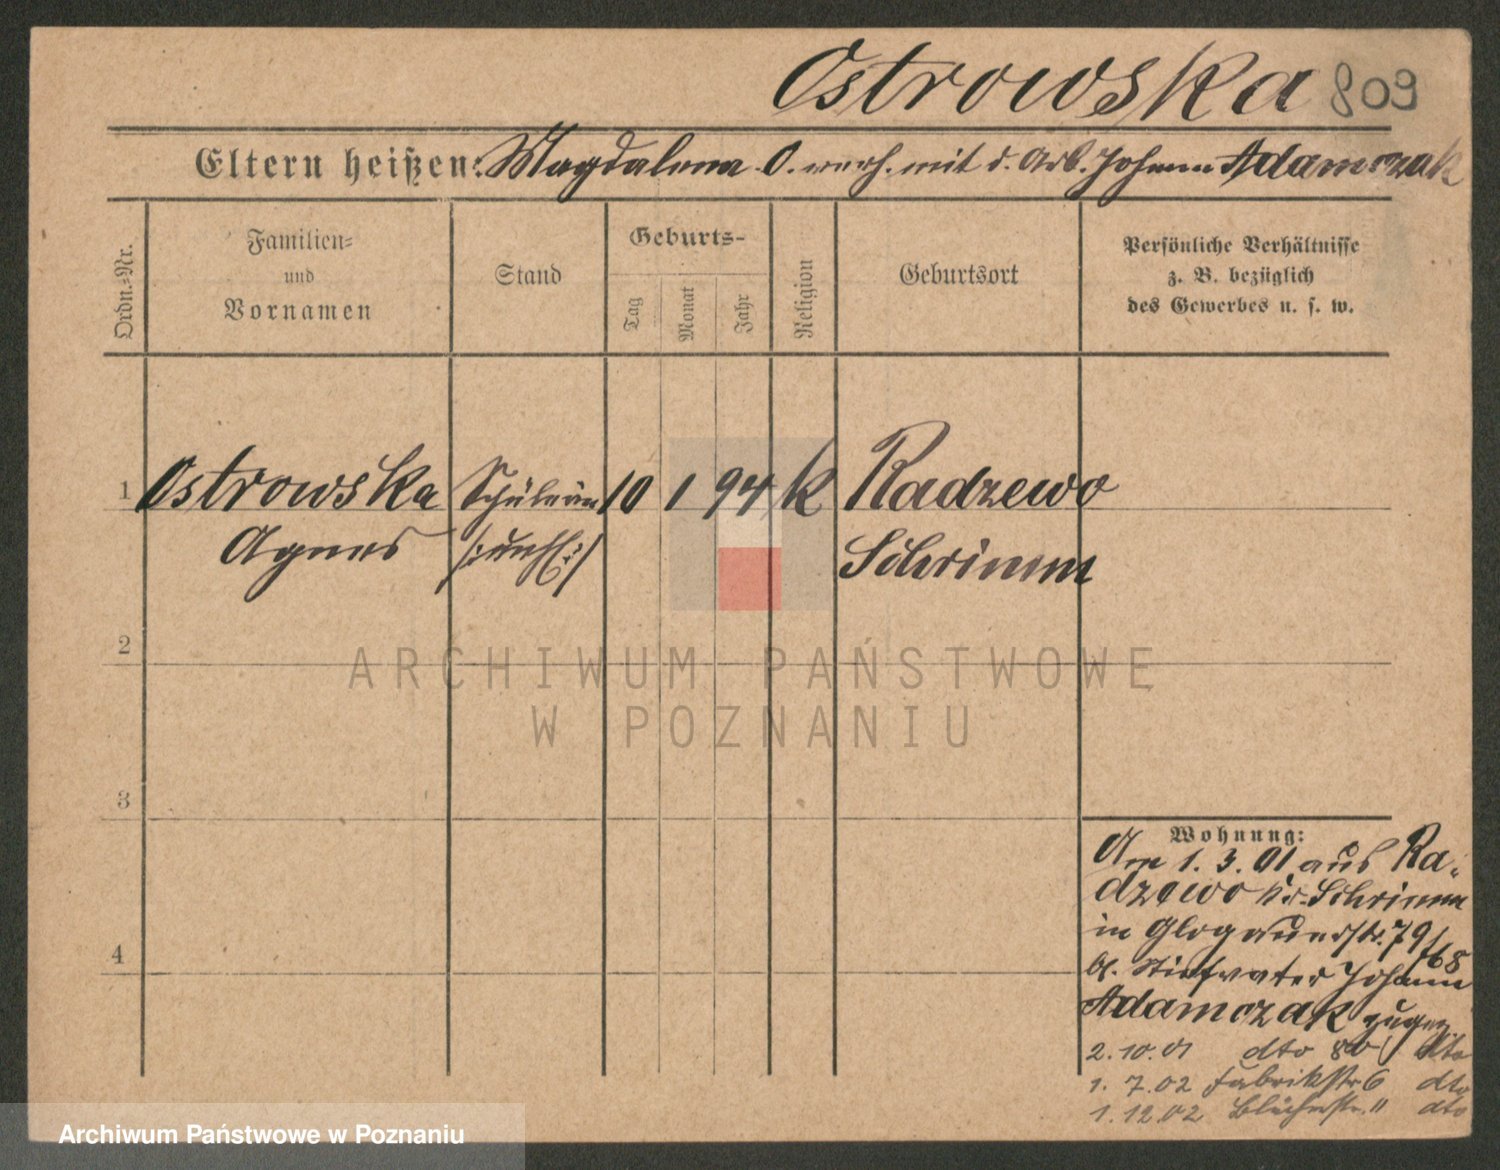 Ostrowska 809
Eltern heißen: Magdalena O. verh. mit d. Arb. Johann Adamczak
Ordn.-Nr.
Familien-
und
Vornamen
Stand
Geburts-
Tag
Monat
Jahr
Religion
Geburtsort
Persönliche Verhältnisse
z. B. bezüglich
des Gewerbes u. s. w.
1 Ostrowska Schülerin 10 1 94 k Radzewo
Agnes /:unehl:/ Schrimm
2
ARCHIWUM PAŃSTWOWE
W POZNANIU
3
4
Wohnung:
Am 1.3.01 aus Ra-
dzewo Kr. Schrimm
in Glogauerstr. 79/
b. Stiefvater Johann
Adamczak zugez.
2.10.01 dto 80 dto
1.7.02 Fabrikstr 6 dto
1.12.02 Blücherstr. 11 dto
Archiwum Państwowe w Poznaniu